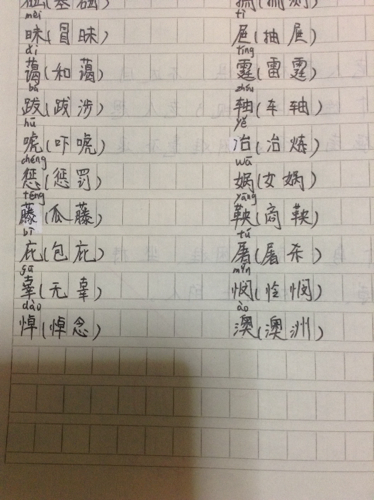 础(基础) 揣(揣测)
mèi tì
昧(冒昧) 屉(抽屉)
ǎi tíng
蔼(和蔼) 霆(雷霆)
bá zhóu
跋(跋涉) 轴(车轴)
hǔ yě
唬(吓唬) 冶(冶炼)
chéng wā
惩(惩罚) 娲(女娲)
téng yāng
藤(瓜藤) 鞅(商鞅)
bì tú
庇(包庇) 屠(屠杀)
gū mǐn
辜(无辜) 悯(怜悯)
dào ào
悼(悼念) 澳(澳洲)